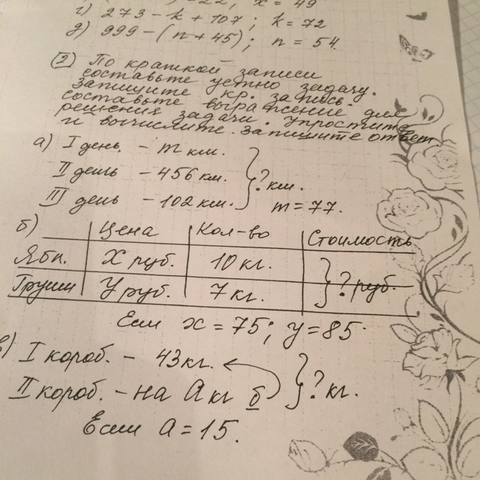 22, x = 49
г) 273 - k + 107; k = 72
д) 999 - (n + 45); n = 54.
2 По краткой записи
составьте устно задачу.
Запишите кр. запись.
составьте выражение для
решения задачи. Упростите
и вычислите. запишите ответ
а) I день. - m км.
II день - 456 км. } ? км.
III день - 102 км. m = 77.
б) Цена Кол-во Стоимость
Ябл. X руб. 10 кг.
Груши У руб. 7 кг. } ? руб.
Если x = 75; y = 85.
в) I короб. - 43 кг.
II короб. - на А кг б } ? кг.
Если а = 15.